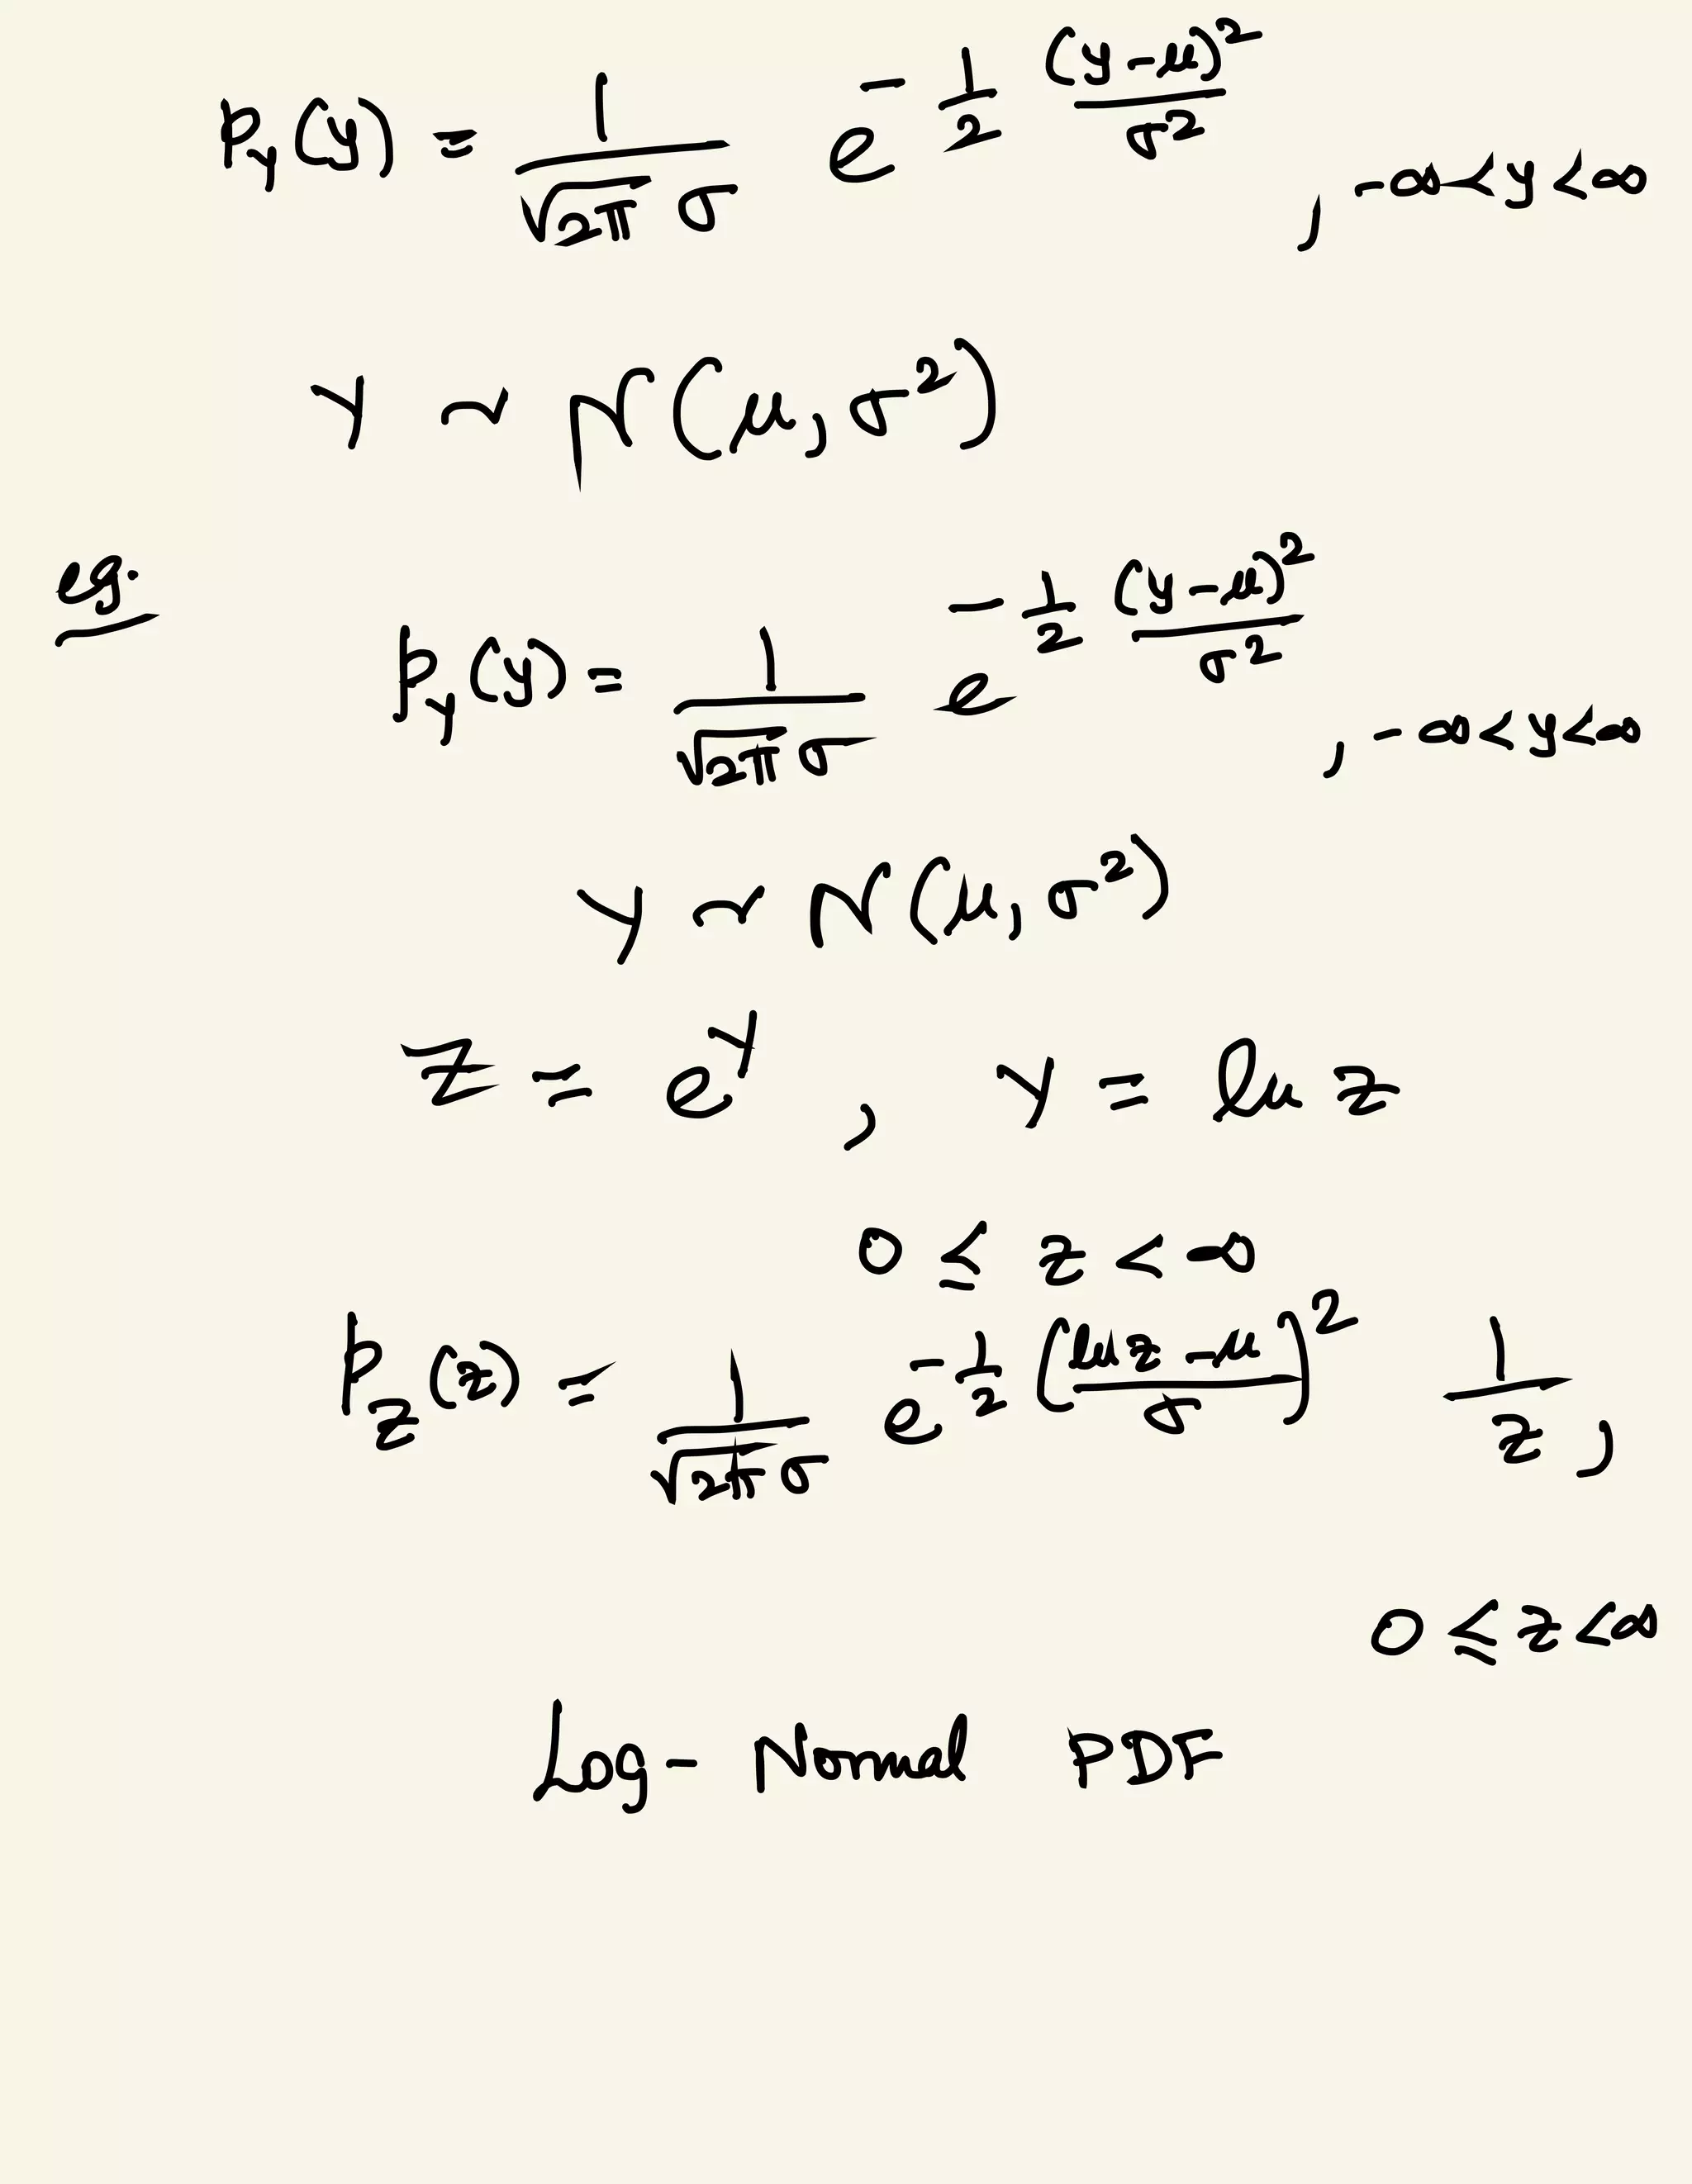 p_Y(y) = \frac{1}{\sqrt{2π} σ} e^{-\frac{1}{2} \frac{(y-μ)^2}{σ^2}}, -∞<y<∞
Y ~ N(μ, σ^2)
eg.
p_Y(y) = \frac{1}{\sqrt{2π} σ} e^{-\frac{1}{2} \frac{(y-μ)^2}{σ^2}}, -∞<y<∞
Y ~ N(μ, σ^2)
Z = e^Y, Y = ln Z
0 ≤ z < ∞
p_Z(z) = \frac{1}{\sqrt{2π} σ} e^{-\frac{1}{2} (\frac{ln z - μ}{σ})^2} \frac{1}{z},
0 ≤ z < ∞
Log-Normal PDF